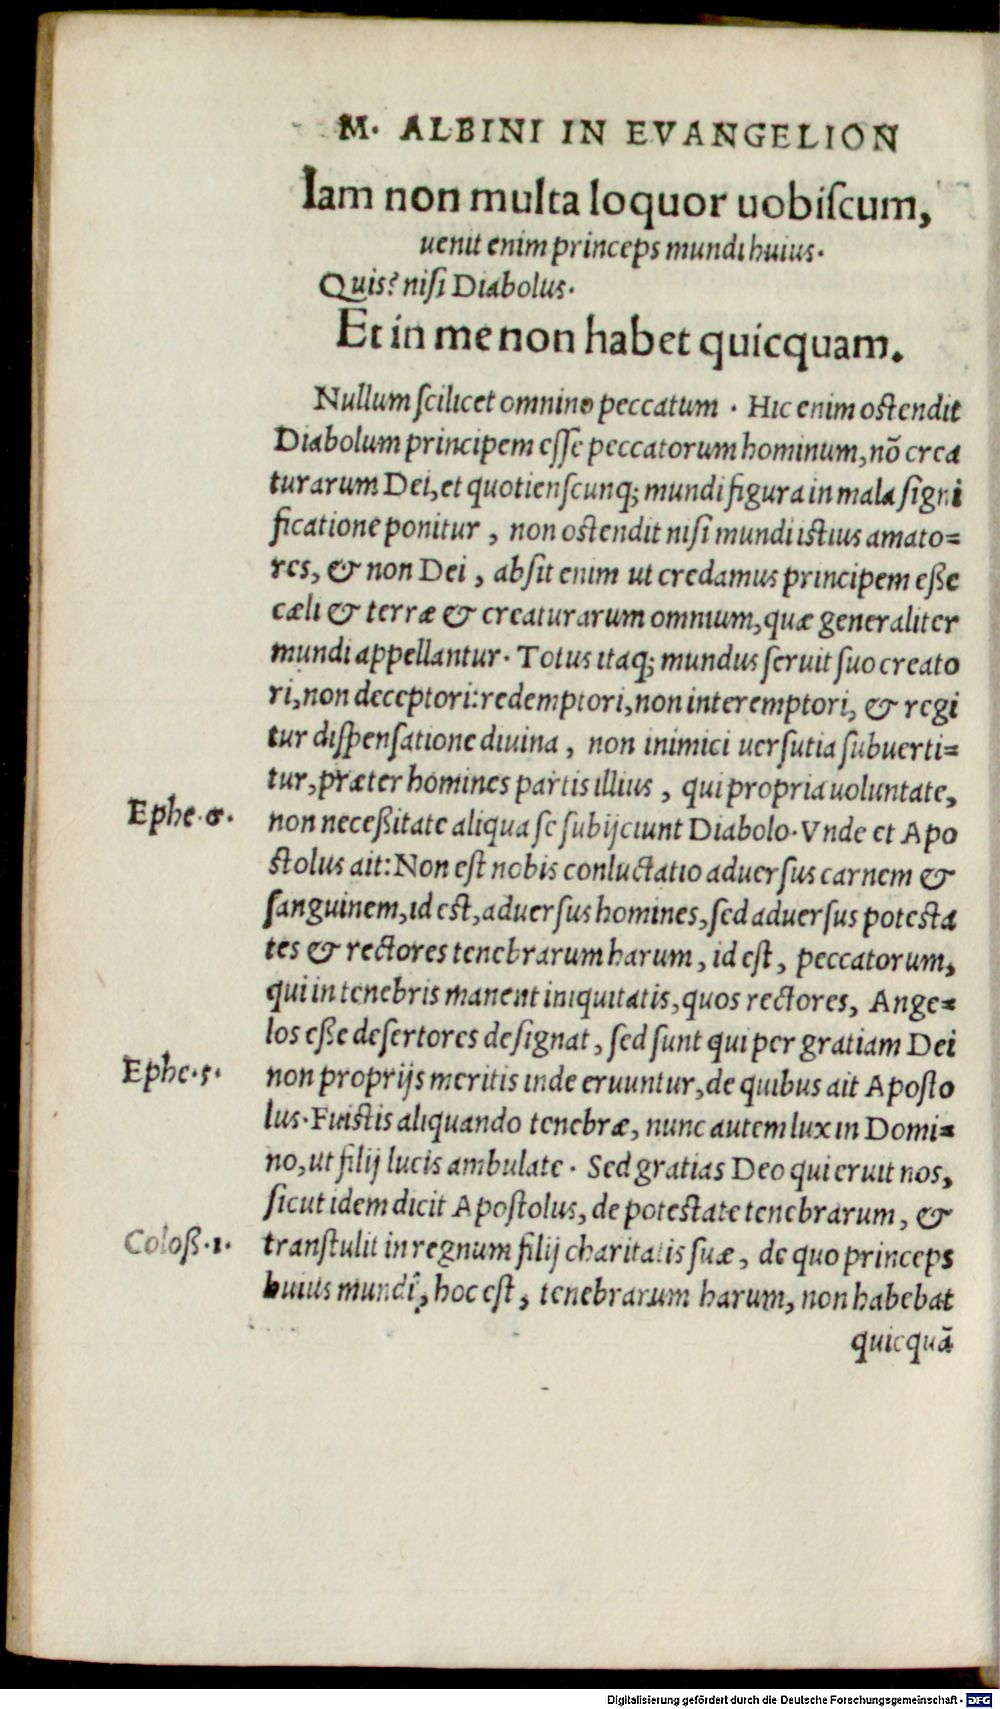 M. ALBINI IN EVANGELION
Iam non multa loquor uobiſcum,
uenit enim princeps mundi huius.
Quis? niſi Diabolus.
Et in me non habet quicquam.
Nullum ſcilicet omnino peccatum . Hic enim oſtendit
Diabolum principem eſſe peccatorum hominum, nõ crea
turarum Dei, et quotienſcunq; mundi figura in mala ſigni
ficatione ponitur , non oſtendit niſi mundi iſtius amato=
res, & non Dei , abſit enim ut credamus principem eße
cæli & terræ & creaturarum omnium, quæ generaliter
mundi appellantur. Totus itaq; mundus ſeruit ſuo creato
ri, non deceptori: redemptori, non interemptori, & regi
tur diſpenſatione diuina , non inimici uerſutia ſubuerti=
tur, præter homines partis illius , qui propria uoluntate,
Ephe. 6.
non neceßitate aliqua ſe ſubijciunt Diabolo. Vnde et Apo
ſtolus ait: Non eſt nobis conluctatio aduerſus carnem &
ſanguinem, id eſt, aduerſus homines, ſed aduerſus poteſta
tes & rectores tenebrarum harum , id eſt , peccatorum,
qui in tenebris manent iniquitatis, quos rectores, Ange=
los eße deſertores deſignat , ſed ſunt qui per gratiam Dei
Ephe. 5.
non proprijs meritis inde eruuntur, de quibus ait Apoſto
lus. Fuiſtis aliquando tenebræ, nunc autem lux in Domi=
no, ut filij lucis ambulate . Sed gratias Deo qui eruit nos,
ſicut idem dicit Apoſtolus, de poteſtate tenebrarum , &
Coloß. 1.
tranſtulit in regnum filij charitatis ſuæ , de quo princeps
huius mundi, hoc eſt , tenebrarum harum, non habebat
quicquã
Digitalisierung gefördert durch die Deutsche Forschungsgemeinschaft - DFG